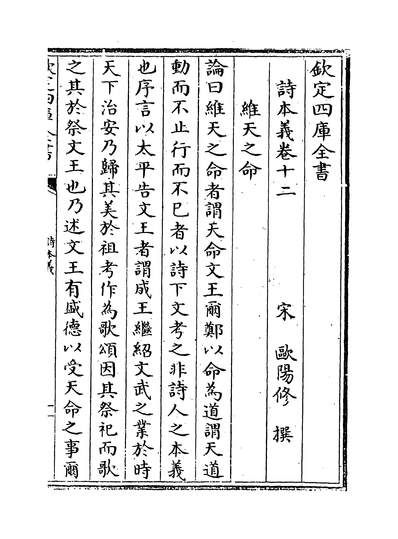 欽定四庫全書
詩本義卷十二
宋 歐陽修 撰
維天之命
論曰維天之命者謂天命文王爾鄭以命為道謂天道
動而不止行而不已者以詩下文考之非詩人之本義
也序言以太平告文王者謂成王繼紹文武之業於時
天下治安乃歸其美於祖考作為歌頌因其祭祀而歌
之其於祭文王也乃述文王有盛德以受天命之事爾
詩本義